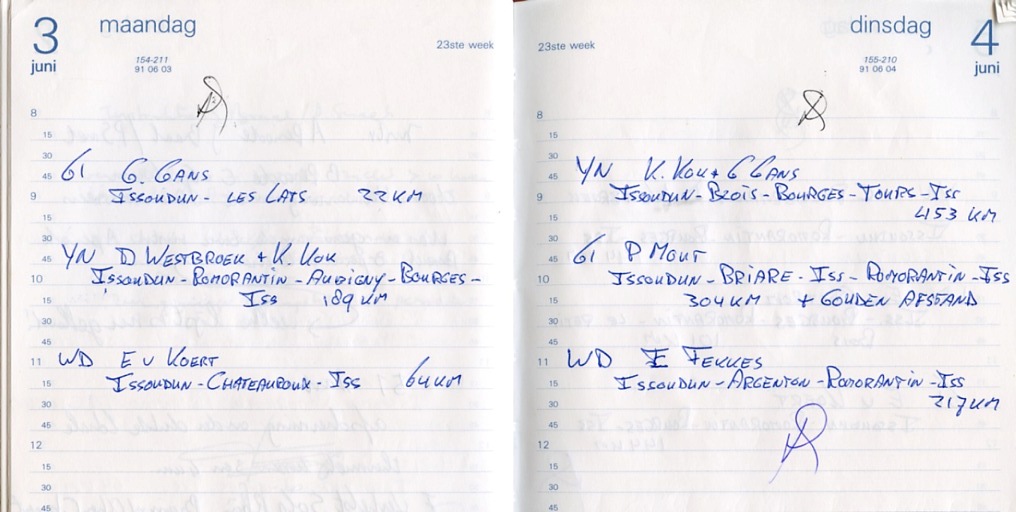 3 maandag
juni
23ste week
154-211
91 06 03
8
15
30
45
G1 G. GANS
9
ISSOUDUN - LES LATS 22 KM
15
30
45
YN D WESTBROEK + K. KOK
10
ISSOUDUN - ROMORANTIN - AUBIGNY - BOURGES -
15
ISS 189 KM
30
45
11
WD E v KOERT
15
ISSOUDUN - CHATEAUROUX - ISS 64 KM
30
45
12
15
30
45
dinsdag 4
juni
23ste week
155-210
91 06 04
8
15
30
45
YN K. KOK + G GANS
9
ISSOUDUN - BLOIS - BOURGES - TOURS - ISS
15
453 KM
30
45
G1 P MOUT
10
ISSOUDUN - BRIARE - ISS - ROMORANTIN - ISS
15
304 KM + GOUDEN AFSTAND
30
45
11
WD E FEKKES
15
ISSOUDUN - ARGENTON - ROMORANTIN - ISS
30
217 KM
45
12
15
30
45